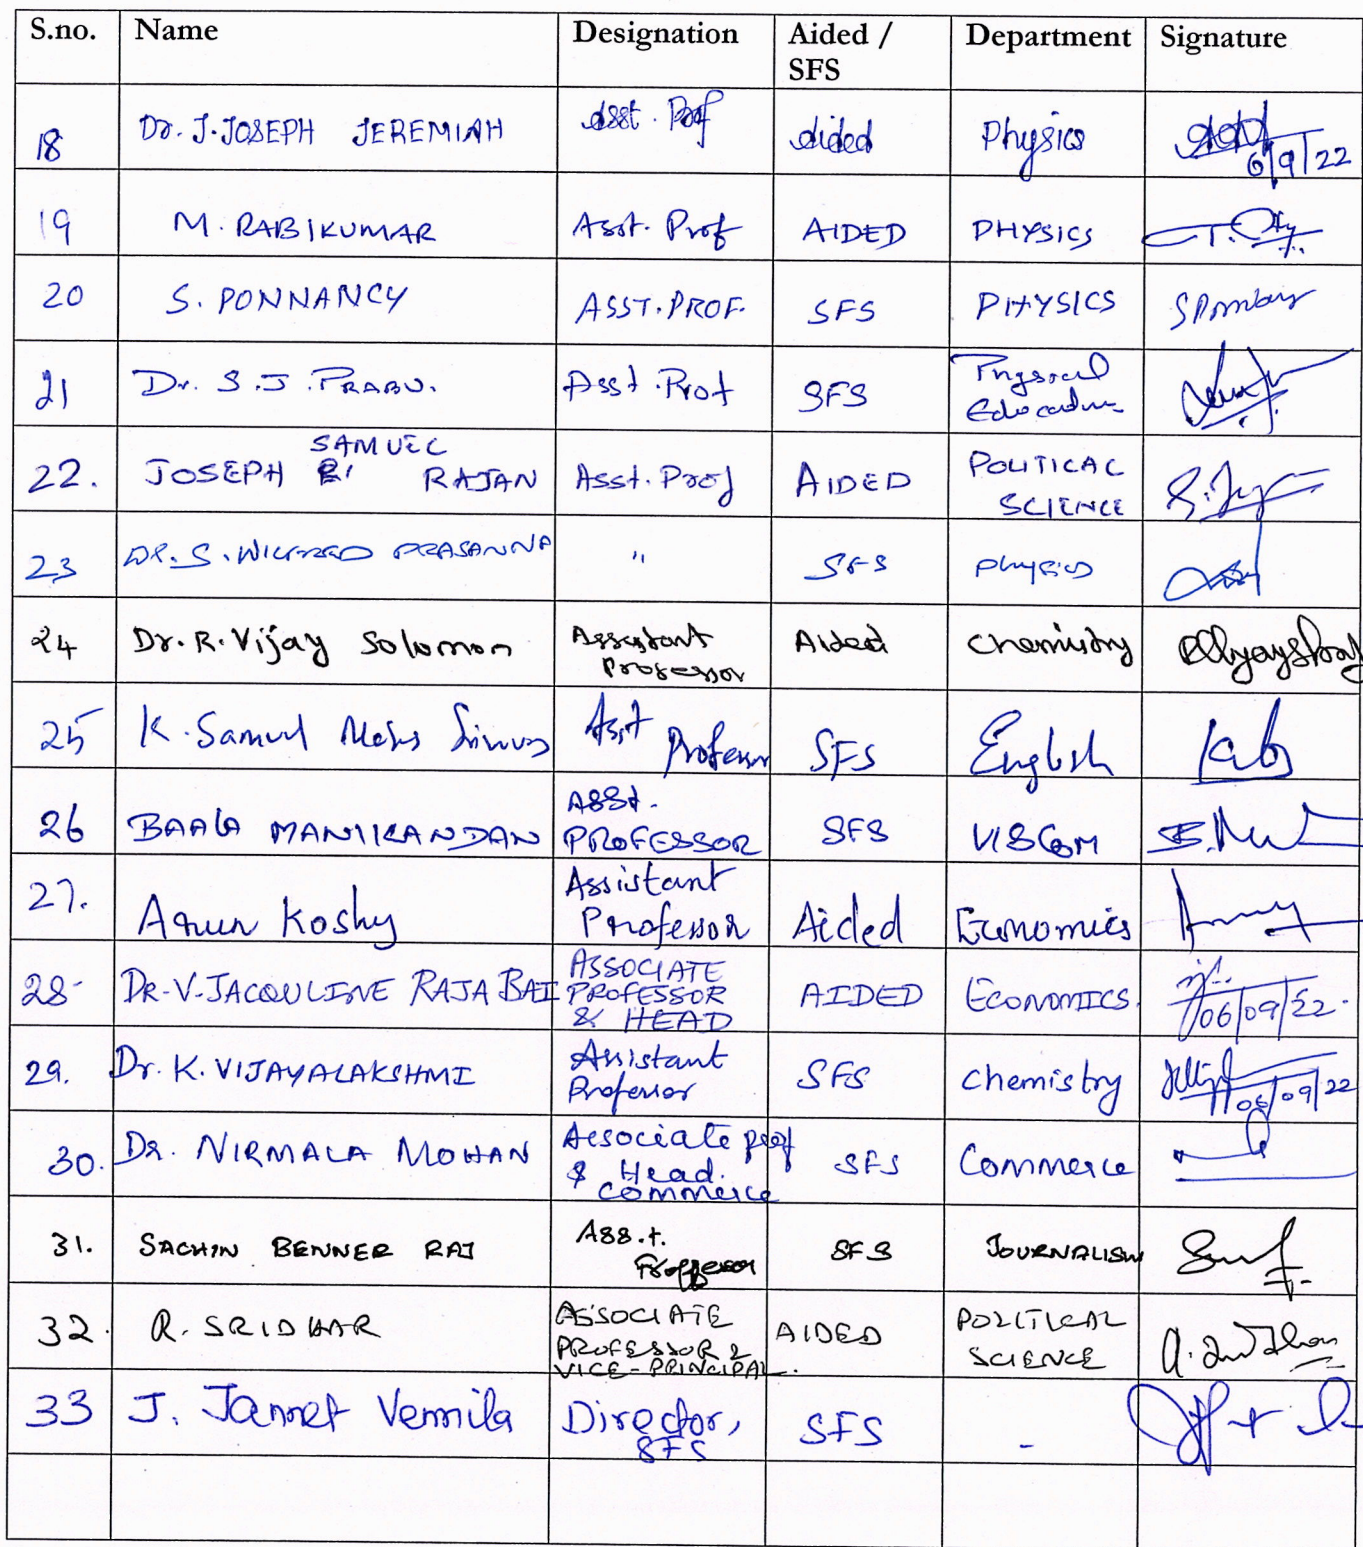 S.no. Name Designation Aided / SFS Department Signature
18 Dr. J. JOSEPH JEREMIAH Asst. Prof Aided Physics 6/9/22
19 M. RABIKUMAR Asst. Prof AIDED PHYSICS
20 S. PONNANCY ASST. PROF. SFS PHYSICS
21 Dr. S. J. PRABU. Asst. Prof SFS Physical Education
22. JOSEPH SAMUEL RAJAN Asst. Prof AIDED POLITICAL SCIENCE
23 DR. S. WILFRED PRASANNA " SFS Physics
24 Dr. R. Vijay Solomon Assistant Professor Aided Chemistry
25 K. Samuel Asst Professor SFS English
26 BAALA MANIKANDAN ASST. PROFESSOR SFS VISCOM
27. Arun Koshy Assistant Professor Aided Economics
28- DR. V. JACQULINE RAJA BAI ASSOCIATE PROFESSOR & HEAD AIDED ECONOMICS. 06/09/22.
29. Dr. K. VIJAYALAKSHMI Assistant Professor SFS Chemistry 06/09/22
30. DR. NIRMALA MOHAN Associate prof & Head. commerce SFS Commerce
31. SACHIN BENNER RAJ Ass.t. Proffesor SFS JOURNALISM
32. R. SRIDHAR ASSOCIATE PROFESSOR & VICE-PRINCIPAL. AIDED POLITICAL SCIENCE
33 J. Jannet Vennila Director, SFS SFS -